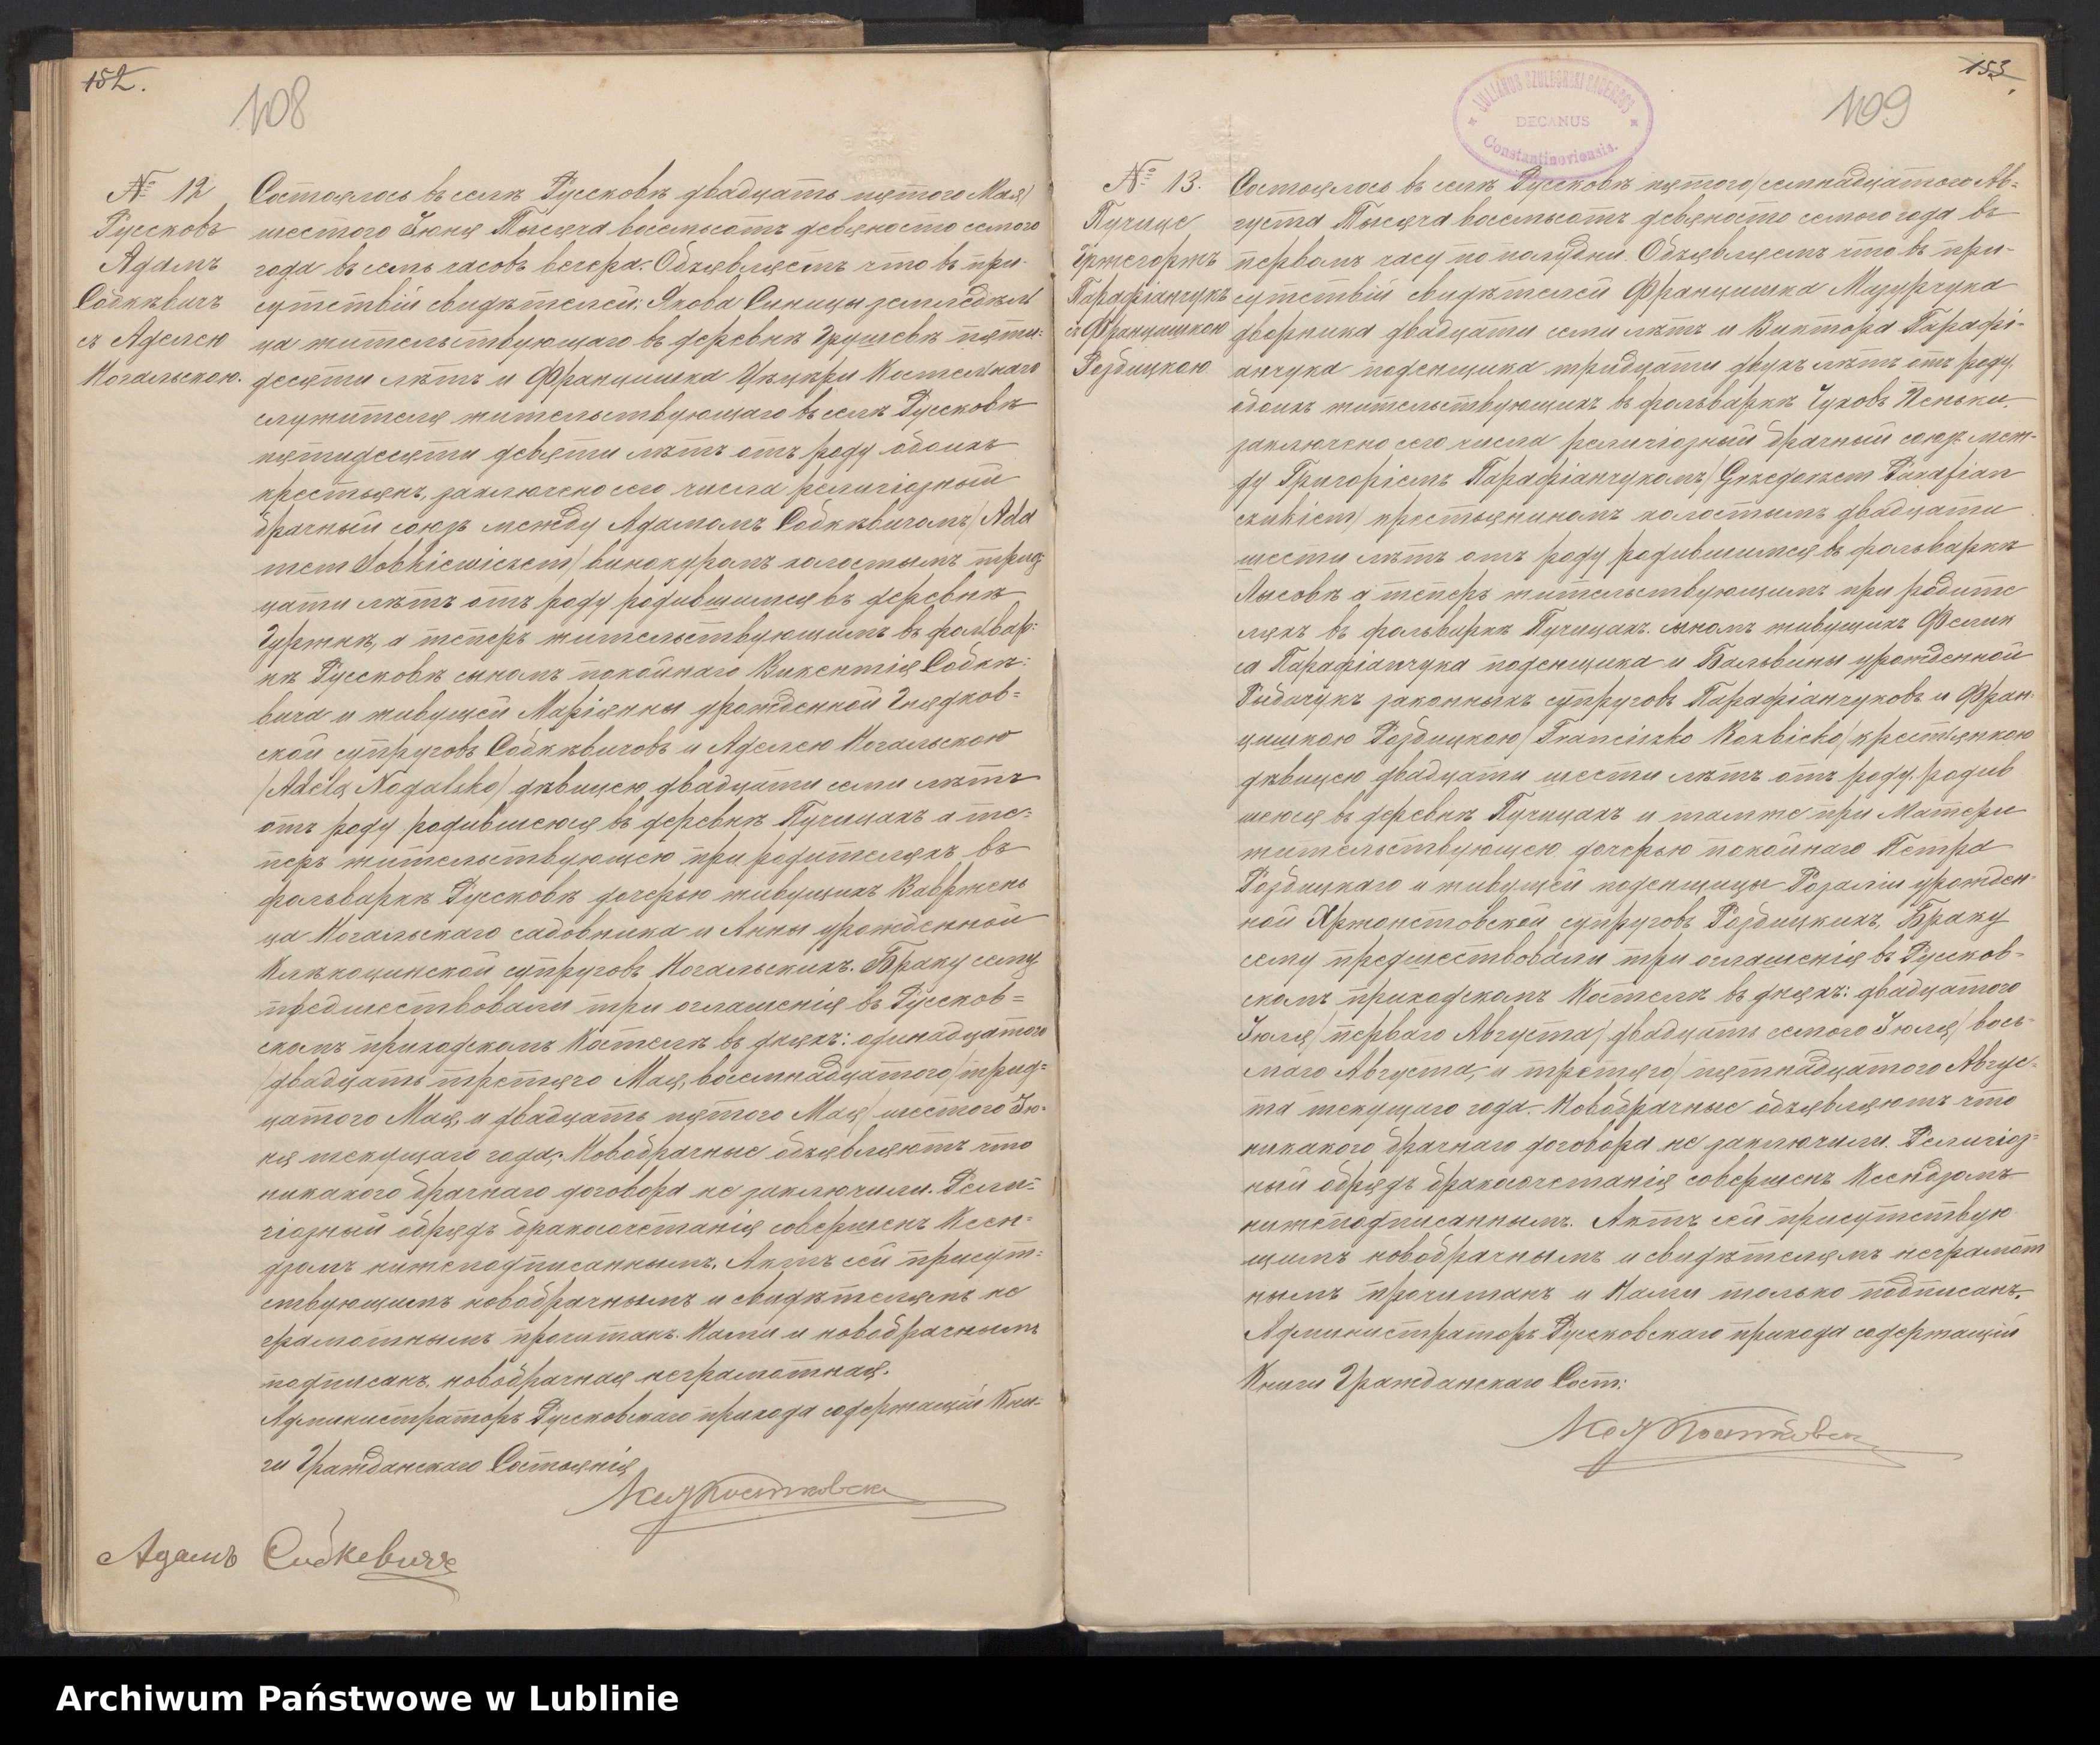 152.
108
№ 12
Русковъ
Адамъ
Собкѣвичъ
съ Аделею
Ногальскою.
Состоялось въ селѣ Русковѣ двадцать пятого Мая/
шестого Іюня Тысяча восемьсотъ девяносто семого
года въ семь часовъ вечера. Объявляемъ что въ при-
сутствіи свидѣтелей: Якова Синицы земледѣль
ца жительствующаго въ деревнѣ Грушевѣ пяти-
десяти лѣтъ и Францишка Костельнаго
служителя жительствующаго въ селѣ Русковѣ
пятидесяти девяти лѣтъ отъ роду обоихъ
крестьянъ, заключено сего числа религіозный
брачный союзъ между Адамомъ Собкѣвичомъ /Ada
mem Sobkiewiczem/ винокуромъ холостымъ трид
цати лѣтъ отъ роду родившимся въ деревнѣ
а теперь жительствующимъ въ фольвар-
кѣ Русковѣ сыномъ покойнаго Викентія Собкѣ-
вича и живущей Маріянны урожденной Гнядков-
ской супруговъ Собкѣвичовъ и Аделею Ногальскою
/Adelą Nogalsko/ дѣвицею двадцати семи лѣтъ
отъ роду родившеюся въ деревнѣ Пучицахъ а те-
перь жительствующею при родителяхъ въ
фольваркѣ Русковѣ дочерью живущихъ Вавржень
ца Ногальскаго садовника и Анны урожденной
супруговъ Ногальскихъ. Браку сему
предшествовали три оглашенія въ Русков=
скомъ приходскомъ Костелѣ въ дняхъ: одинадцатого
/двадцать третяго Мая, восемнадцатого/трид=
цатого Мая, и двадцать пятого Мая/ шестого Ію-
ня текущаго года. Новобрачные объявляютъ что
никакого брачнаго договора не заключили. Рели-
гіозный обрядъ бракосочетанія совершенъ Ксен-
дзомъ нижеподписаннымъ. Актъ сей присут-
ствующимъ новобрачнымъ и свидѣтелямъ не
грамотнымъ прочитанъ. Нами и новобрачнымъ
подписанъ. новобрачная неграмотная.
Администраторъ Русковскаго прихода содержащій Кни-
ги Гражданскаго Состоянія
Адамъ Собкевичъ
153
109
JULIANUS SACERDOS
DECANUS
Constantinoviensis.
№ 13.
Пучице
Гржегоржъ
Парафіанчукъ
съ Францишкою
Розбицкою
Состоялось въ селѣ Русковѣ пятого/семнадцатого Ав-
густа Тысяча восемьсотъ девяносто семого года въ
первомъ часу по полудни. Объявляемъ что въ при-
сутствіи свидѣтелей Францишка Мазурчука
дворника двадцати семи лѣтъ и Виктора Парафі-
анчука поденщика тридцати двухъ лѣтъ отъ роду,
обоихъ жительствующихъ въ фольваркѣ Чуховъ Пеньки.
заключено сего числа религіозный брачный союзъ меж-
ду Григоріемъ Парафіанчукомъ/ Grzegorzem Parafian
czukiem/ крестьяниномъ холостымъ двадцати
шести лѣтъ отъ роду родившимся въ фольваркѣ
Лысовѣ а теперь жительствующимъ при родите
ляхъ въ фольваркѣ Пучицахъ. сыномъ живущихъ Феликс
са Парафіанчука поденщика и Бальвины урожденной
законныхъ супруговъ Парафіанчуковъ и Фран-
цишкою Розбицкою/ Franciszko Rozbicko/ крестьянкою
дѣвицею двадцати шести лѣтъ отъ роду, родив
шеюся въ деревнѣ Пучицахъ и тамже при Матери
жительствующею дочерью покойнаго Петра
Розбицкаго и живущей поденщицы Розаліи урожден-
ной Хржонстовской супруговъ Розбицкихъ, Браку
сему предшествовали три оглашенія въ Русков-
скомъ приходскомъ Костелѣ въ дняхъ: двадцатого
Іюля/ перваго Августа/ двадцать семого Іюля/ вось-
маго Августа, и третяго/ пятнадцатого Авгус-
та текущаго года. Новобрачные объявляютъ что
никакого брачнаго договора не заключили. Религіоз-
ный обрядъ бракосочетанія совершенъ Ксендзомъ
нижеподписаннымъ. Актъ сей присутствую
щимъ новобрачнымъ и свидѣтелямъ неграмот
нымъ прочитанъ и Нами только подписанъ.
Администраторъ Русковскаго прихода содержащій
Книги Гражданскаго Сост:
Archiwum Państwowe w Lublinie